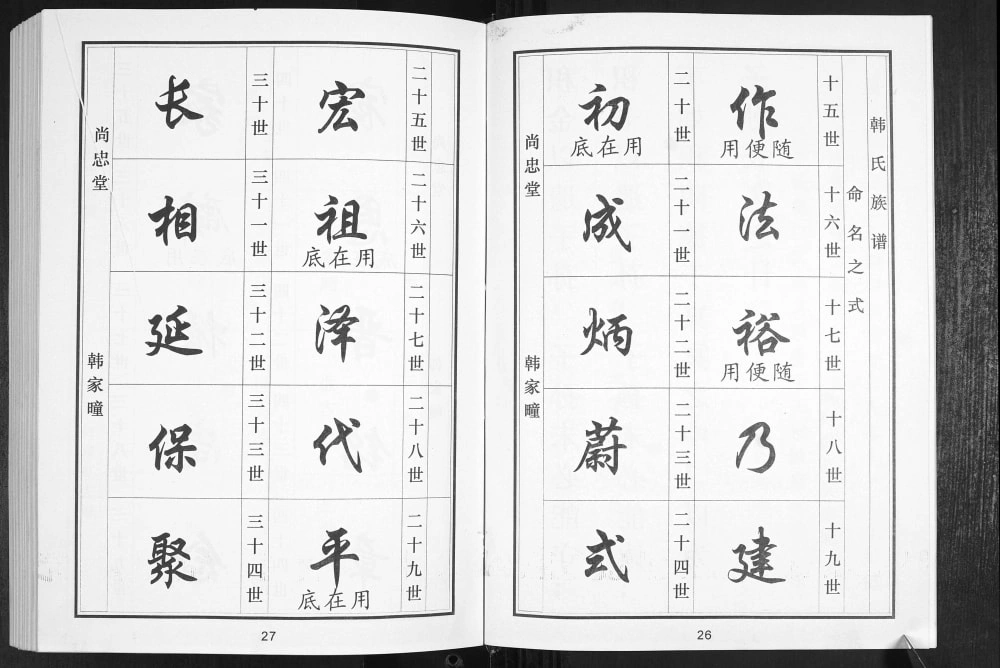 韩氏族谱
命名之式
十五世
作
随便用
十六世
法
十七世
裕
随便用
十八世
乃
十九世
建
二十世
初
用在底
二十一世
成
二十二世
炳
二十三世
蔚
二十四世
式
尚忠堂
韩家疃
26
二十五世
宏
二十六世
祖
用在底
二十七世
泽
二十八世
代
二十九世
平
用在底
三十世
长
三十一世
相
三十二世
延
三十三世
保
三十四世
聚
尚忠堂
韩家疃
27